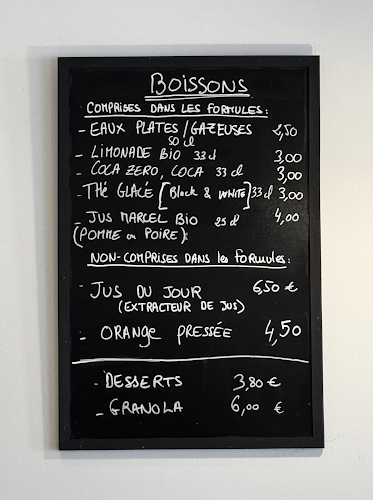 BOISSONS
COMPRISES DANS LES FORMULES:
- EAUX PLATES / GAZEUSES 2,50
50 cl
- LIMONADE BIO 33 cl 3,00
- COCA ZERO, COCA 33 cl 3,00
- THÉ GLACÉ [Black & WHITE] 33 cl 3,00
- JUS MARCEL BIO 25 cl 4,00
(POMME ou POIRE):
NON-COMPRISES DANS les formules:
- JUS DU JOUR 6,50 €
(EXTRACTEUR DE JUS)
- ORANGE PRESSÉE 4,50
- DESSERTS 3,80 €
- GRANOLA 6,00 €